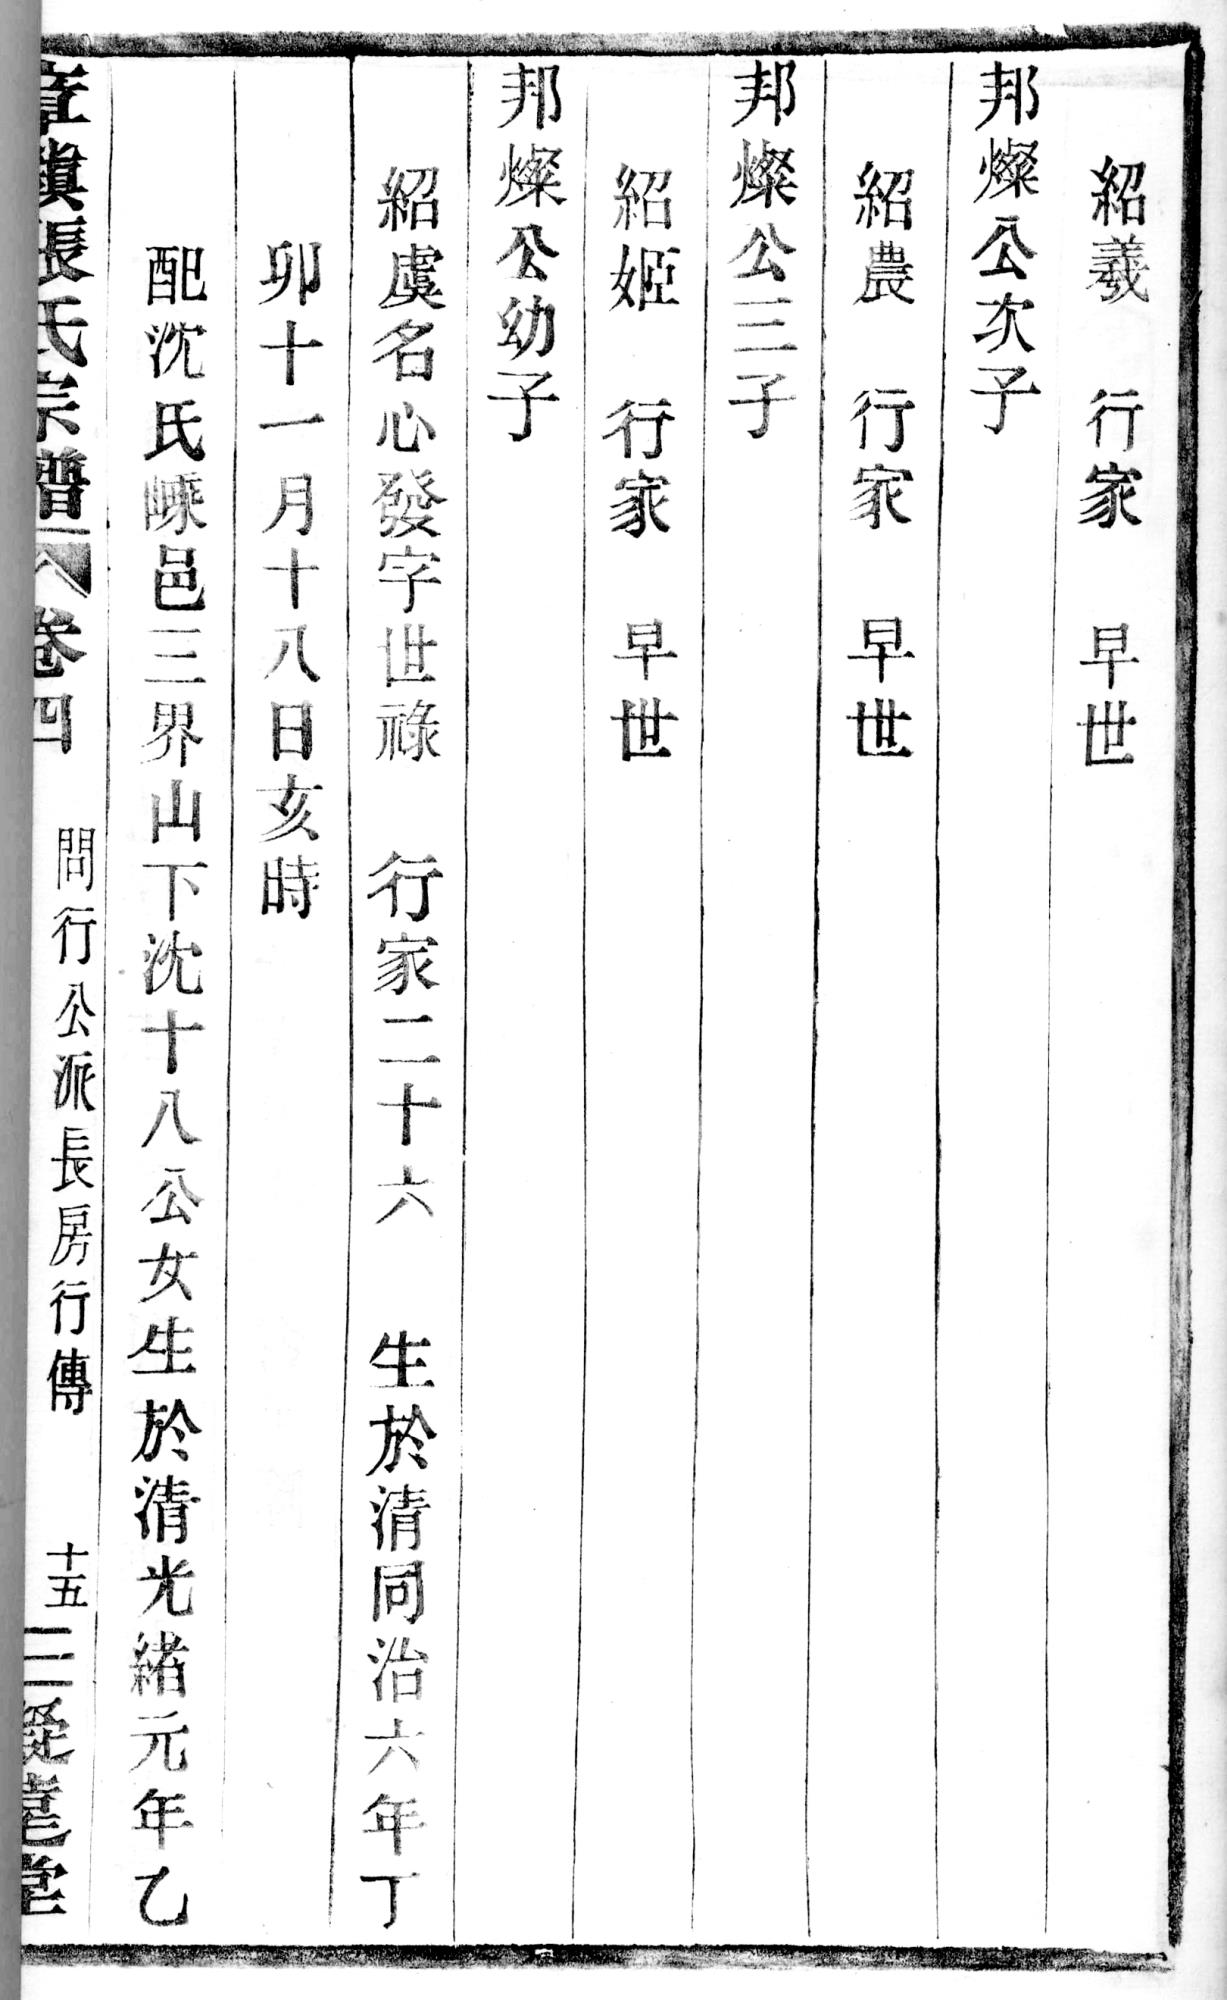 紹羲 行家 早世
邦燦公次子
紹農 行家 早世
邦燦公三子
紹姬 行家 早世
邦燦公幼子
紹虞名心發字世祿 行家二十六 生於清同治六年丁
卯十一月十八日亥時
配沈氏嵊邑三界山下沈十八公女生於清光緒元年乙
章鎮張氏宗譜 卷四 問行公派長房行傳 十五 三